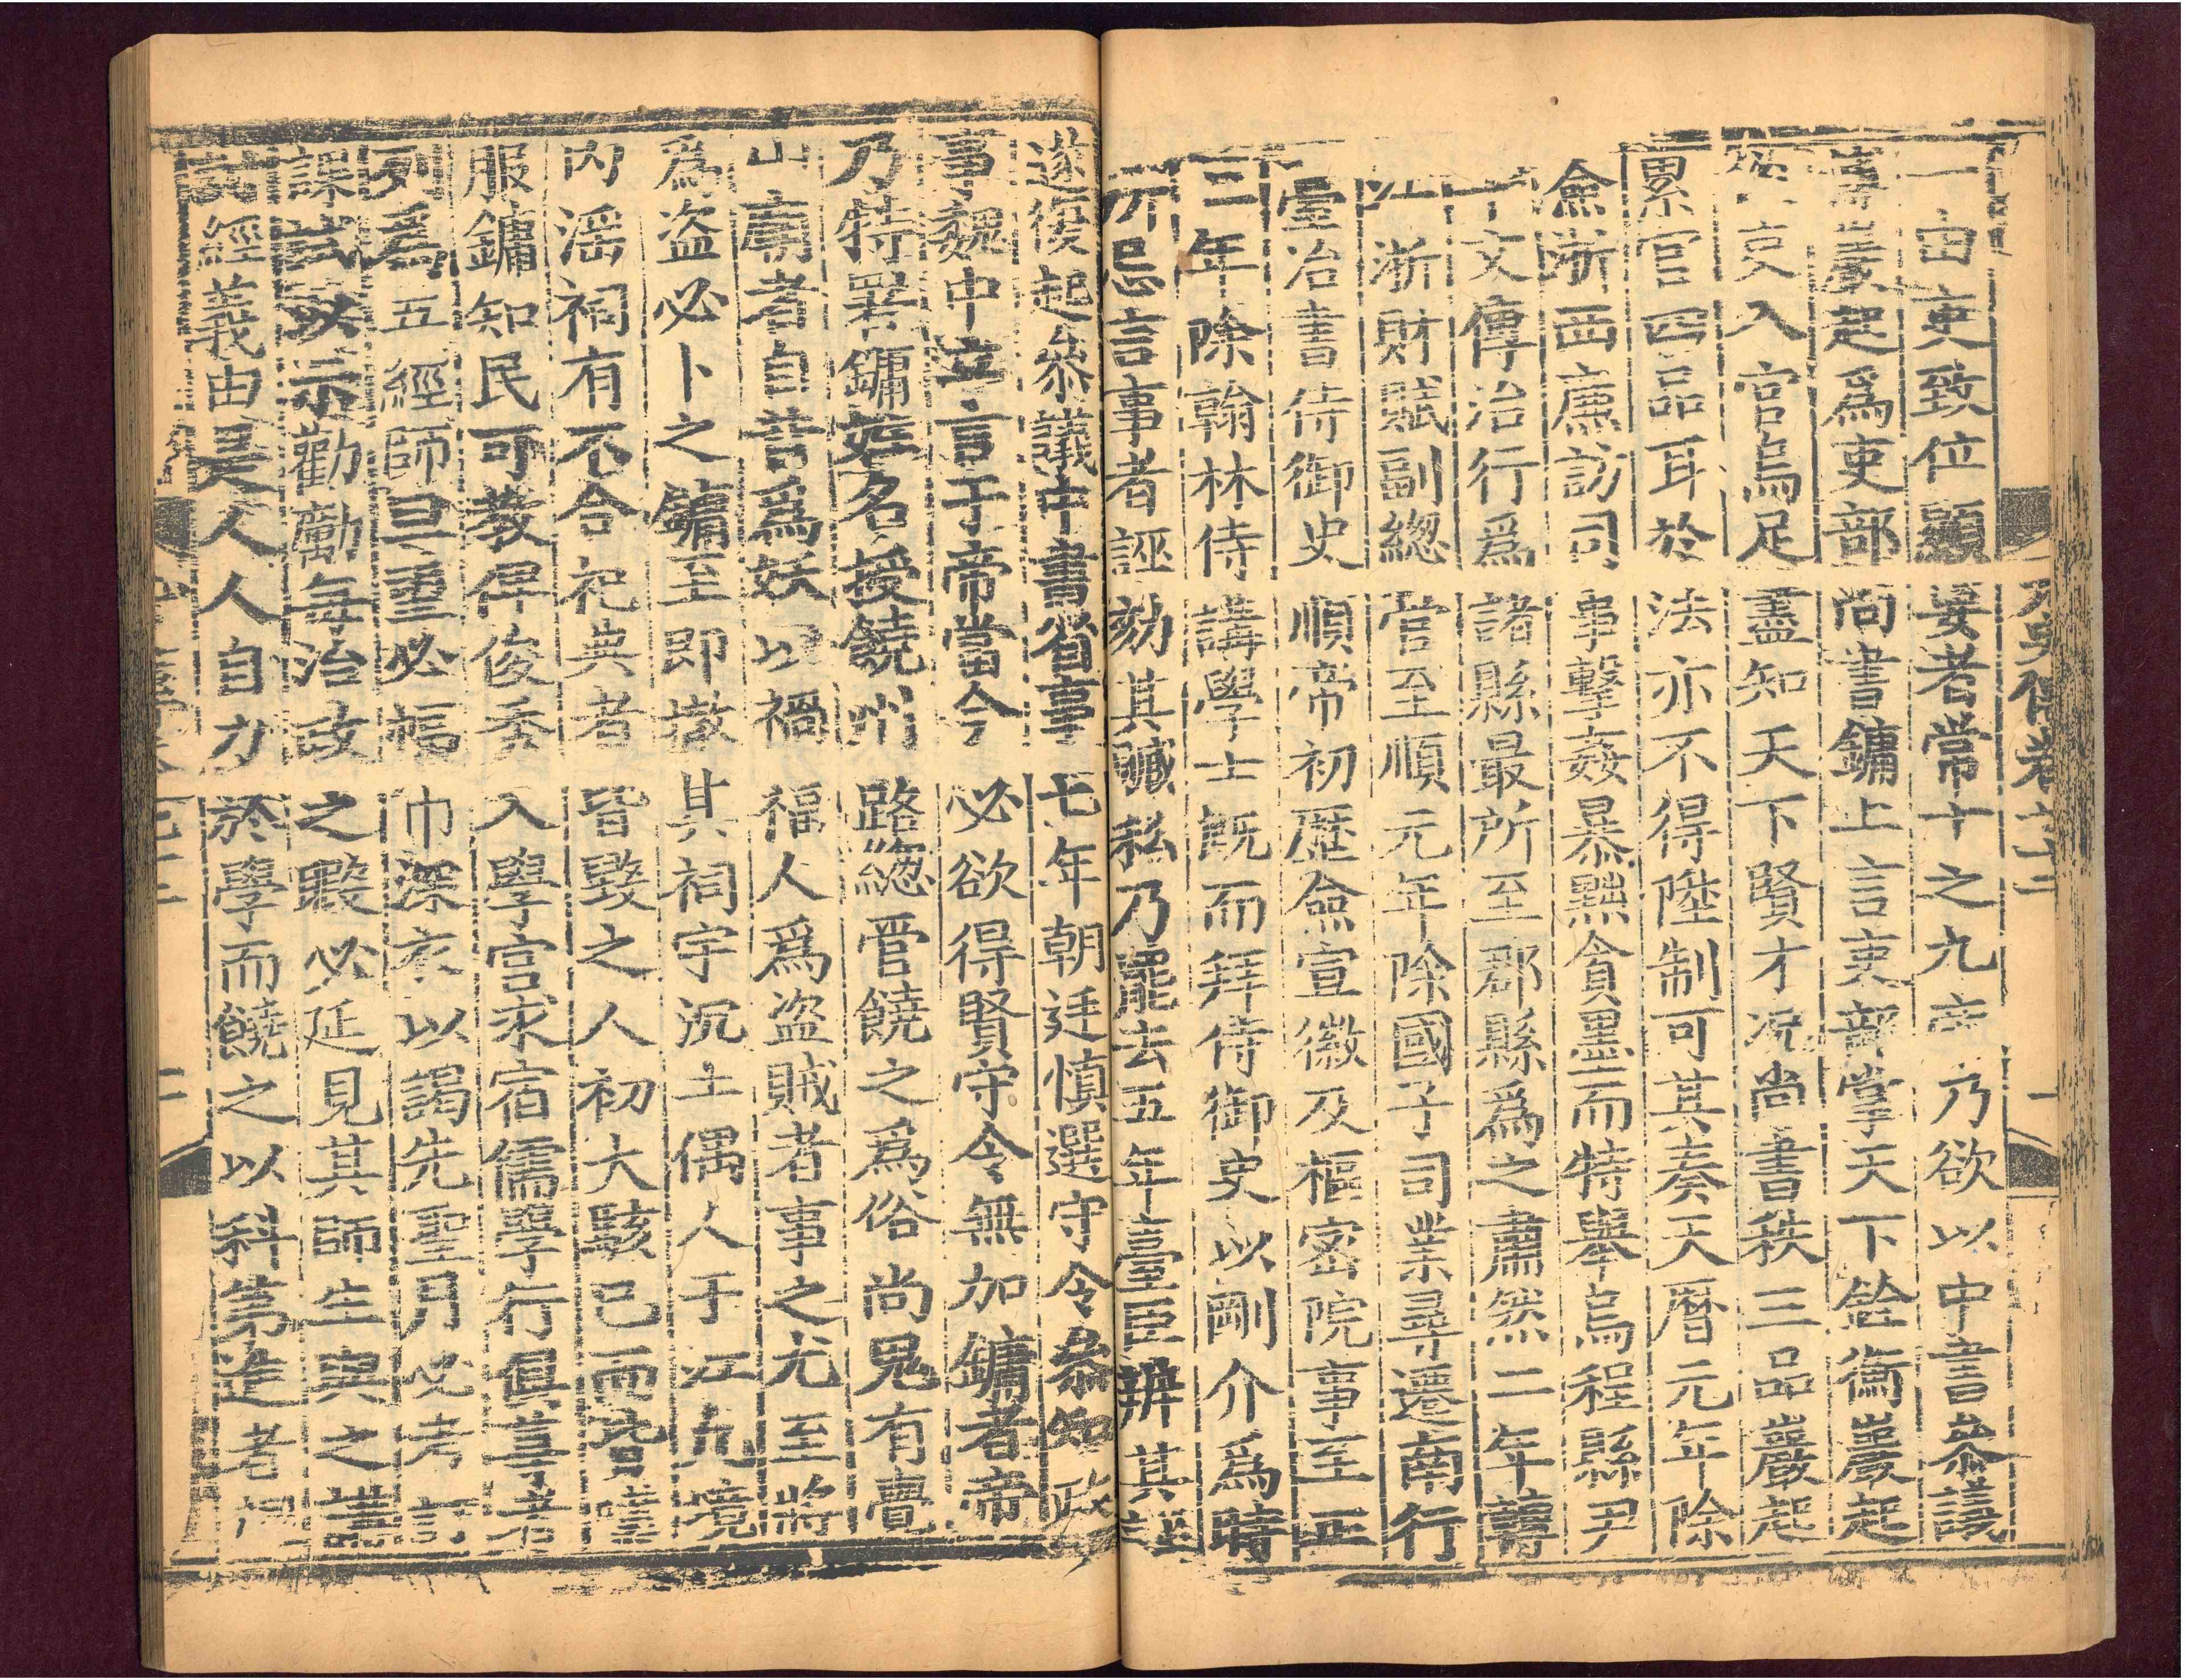 史傳卷七十二 一
一由吏致位顯要者常十之九帝乃欲以中書參議
巖起爲吏部尚書鏞上言吏部掌天下銓衡巖起
入官烏足盡知天下賢才况尚書秩三品巖起
累官四品耳於法亦不得陞制可其奏天曆元年除
僉浙西廉訪司事擊姦暴黜貪墨而特舉烏程縣尹
干文傳治行爲諸縣最所至郡縣爲之肅然二年轉
江浙財賦副緫管至順元年除國子司業尋遷南行
臺治書侍御史順帝初歷僉宣徽及樞密院事至正
三年除翰林侍講學士既而拜侍御史以剛介爲時
所忌言事者誣劾其贓私乃罷去五年臺臣辨其誣
遂復起叅議中書省事七年朝廷慎選守令叅知政
事魏中立言于帝當今必欲得賢守令無加鏞者帝
乃特署鏞姓名授饒州路緫管饒之爲俗尚鬼有覺
山廟者自昔爲妖以禍福人爲盗賊者事之尤至將
爲盗必卜之鏞至即撤其祠宇沉土偶人于江凡境
内淫祠有不合祀典者皆毀之人初大駭已而皆嘆
服鏞知民可教俾俊秀入學宮求宿儒學行俱尊者
列爲五經師旦望必幅巾深衣以謁先聖月必考訂
課試以示勸勵每治政之暇必延見其師生與之講
討經義由是人人自力於學而饒之以科第進者視